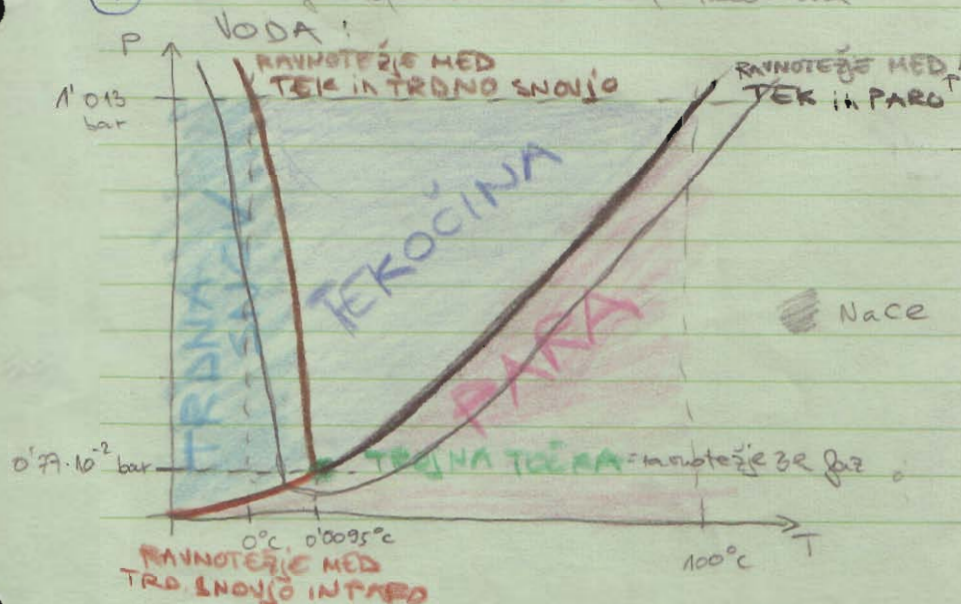 VODA:
P
RAVNOTEŽJE MED
TEK in TRDNO SNOVJO
RAVNOTEŽJE MED
TEK in PARO
1'013
bar
TRDNA
SNOV
TEKOČINA
PARA
NaCl
0'77·10⁻² bar
TROJNA TOČKA = ravnotežje 3e faz
0°C
0'0095°C
100°C
T
RAVNOTEŽJE MED
TRD. SNOVJO IN PARO